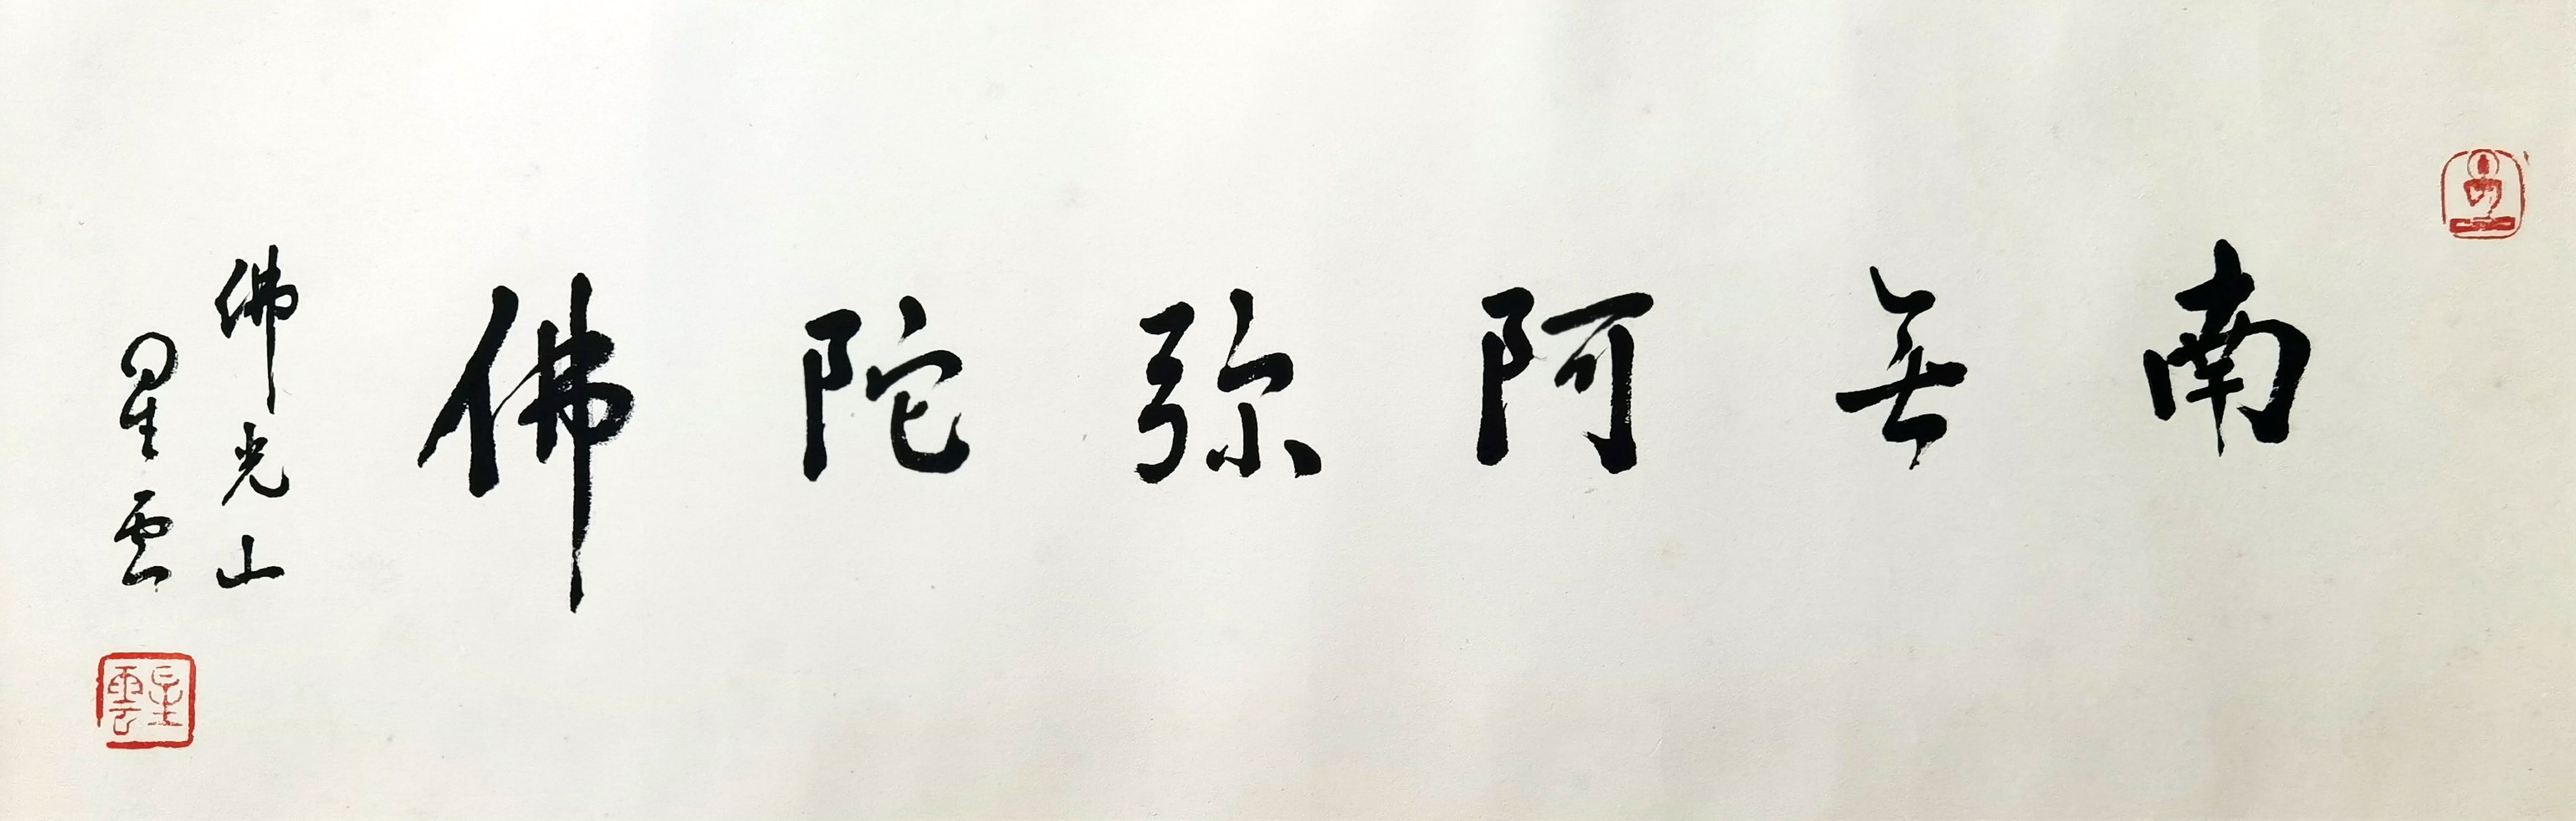 南无阿弥陀佛
佛光山
星雲
星雲